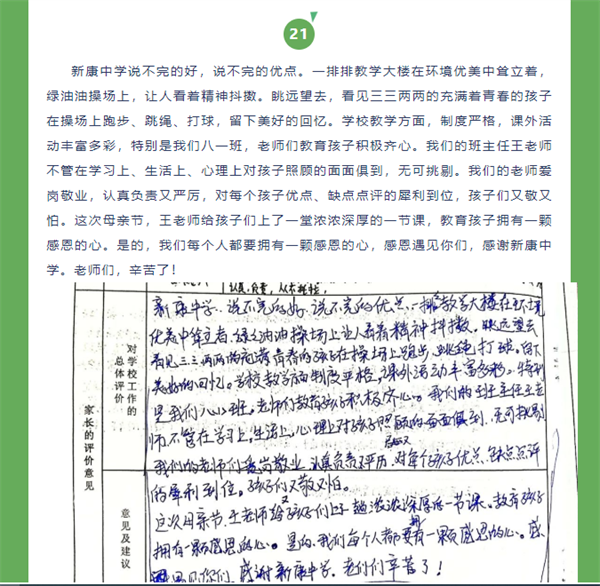 21
新康中学说不完的好，说不完的优点。一排排教学大楼在环境优美中耸立着，
绿油油操场上，让人看着精神抖擞。眺远望去，看见三三两两的充满着青春的孩子
在操场上跑步、跳绳、打球，留下美好的回忆。学校教学方面，制度严格，课外活
动丰富多彩，特别是我们八一班，老师们教育孩子积极齐心。我们的班主任王老师
不管在学习上、生活上、心理上对孩子照顾的面面俱到，无可挑剔。我们的老师爱
岗敬业，认真负责又严厉，对每个孩子优点、缺点点评的犀利到位，孩子们又敬又
怕。这次母亲节，王老师给孩子们上了一堂浓浓深厚的一节课，教育孩子拥有一颗
感恩的心。是的，我们每个人都要拥有一颗感恩的心，感恩遇见你们，感谢新康中
学。老师们，辛苦了！
家长的评价意见
对学校工作的
总体评价
意见及建议
新康中学、说不完的好、说不完的优点、一排教学大楼在环境
优美中耸立着、绿油油操场上让人看着精神抖擞。眺远望去
看见三三两两的充满着青春的孩子在操场上跑步、跳绳打球。留下
美好的回忆。学校教学方面制度严格，课外活动丰富多彩，特别
是我们八一班。老师们教育孩子积极齐心。我们的班主任王老
师不管在学习上、生活上、心理上对孩子照顾的面面俱到、无可挑剔
我们的老师们爱岗敬业、认真负责又严厉、对每个孩子优点、缺点点评
的犀利到位。孩子们又敬又怕。
这次母亲节、王老师给孩子们上了一趟浓浓深厚的一节课。教育孩子
拥有一颗感恩的心。是的、我们每个人都要拥有一颗感恩的心、感
恩遇见你们、感谢新康中学、老师们辛苦了！